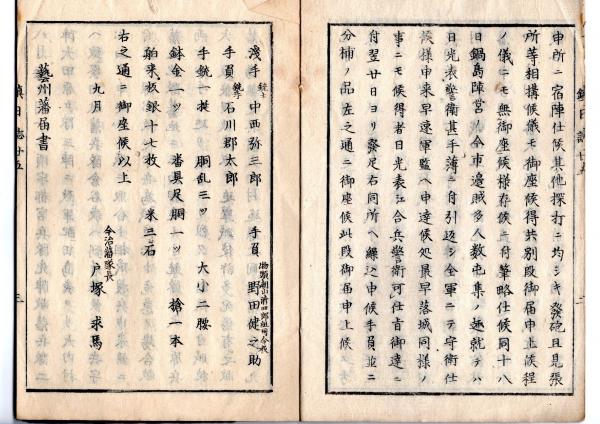 申所ニ宿陣仕候其他探打ニ均シキ發砲且見張
所等相搆候儀モ御座候得共別段御届申上候程
ノ儀ニモ無御座候様存候ニ付筆略仕候同十八
日鍋島陣営ノ今市邊賊多人数屯集ノ趣就テハ
日光表警衛甚手薄ニ付引返シ全軍ニテ守衛仕
候様申来早速軍監ヘ申達候処最早落城同様ノ
事ニモ候得者日光表江合兵警衛可仕旨御達ニ
付翌廿日ヨリ發足右同所ヘ繰込申候手負並ニ
分捕ノ品左之通ニ御座候此段御届申上候以上
淺手 銃手 中西弥三郎 手負 野田健之助
手負 銃手 石川郡太郎
手銃一挺 胴乱三ツ 大小二腰
鉢金一ツ 沓具足胴一ツ 槍一本
舶来板銀十七枚 米三石
右之通ニ御座候以上
九月 今治藩隊長 戸塚求馬
藝州藩届書
三